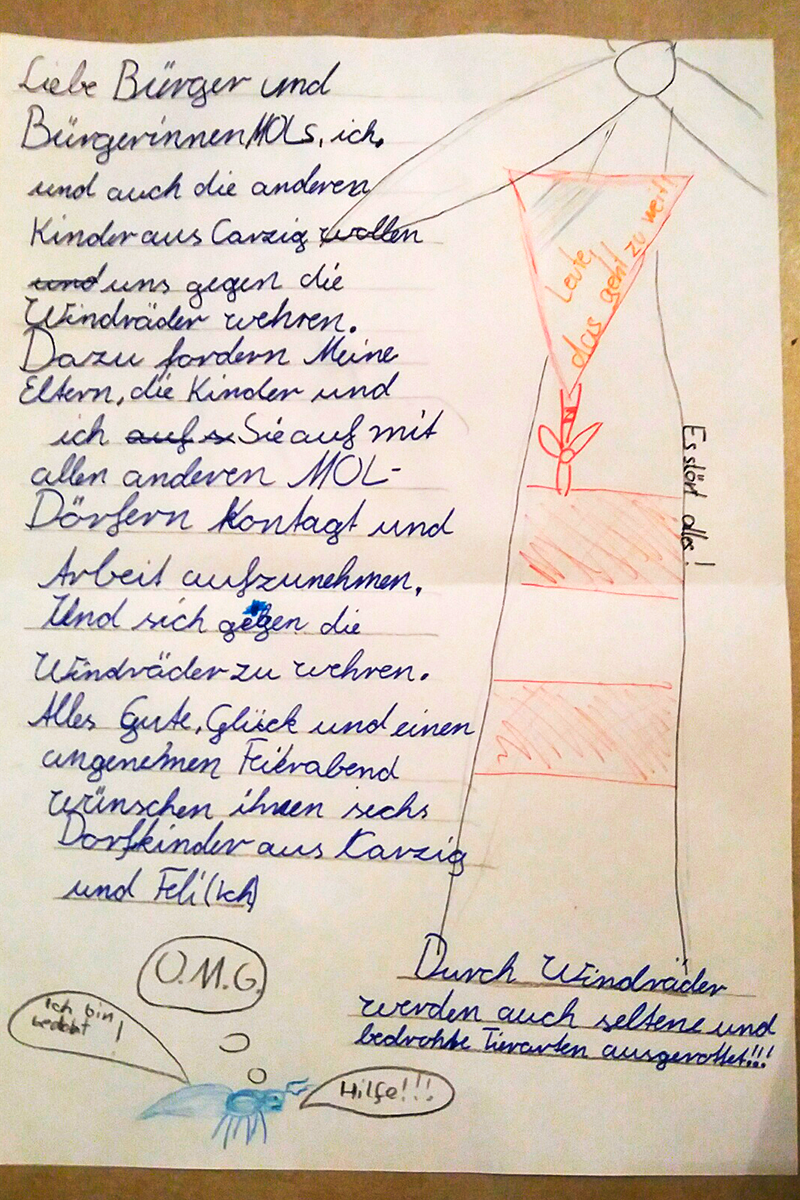 Liebe Bürger und
Bürgerinnen MOLs, ich,
und auch die anderen
Kinder aus Carzig wollen
und uns gegen die
Windräder wehren.
Dazu fordern Meine
Eltern, die Kinder und
ich auf s Sie auf mit
allen anderen MOL-
Dörfern Kontagt und
Arbeit aufzunehmen.
Und sich gegen die
Windräder zu wehren.
Alles Gute, Glück und einen
angenehmen Feierabend
wünschen ihnen sechs
Dorfkinder aus Karzig
und Feli (Ich)
Leute,
das geht zu weit!
Es stört alles!
Durch Windräder
werden auch seltene und
bedrohte Tierarten ausgerottet!!!
O.M.G.
Ich bin
bedroht!
Hilfe!!!